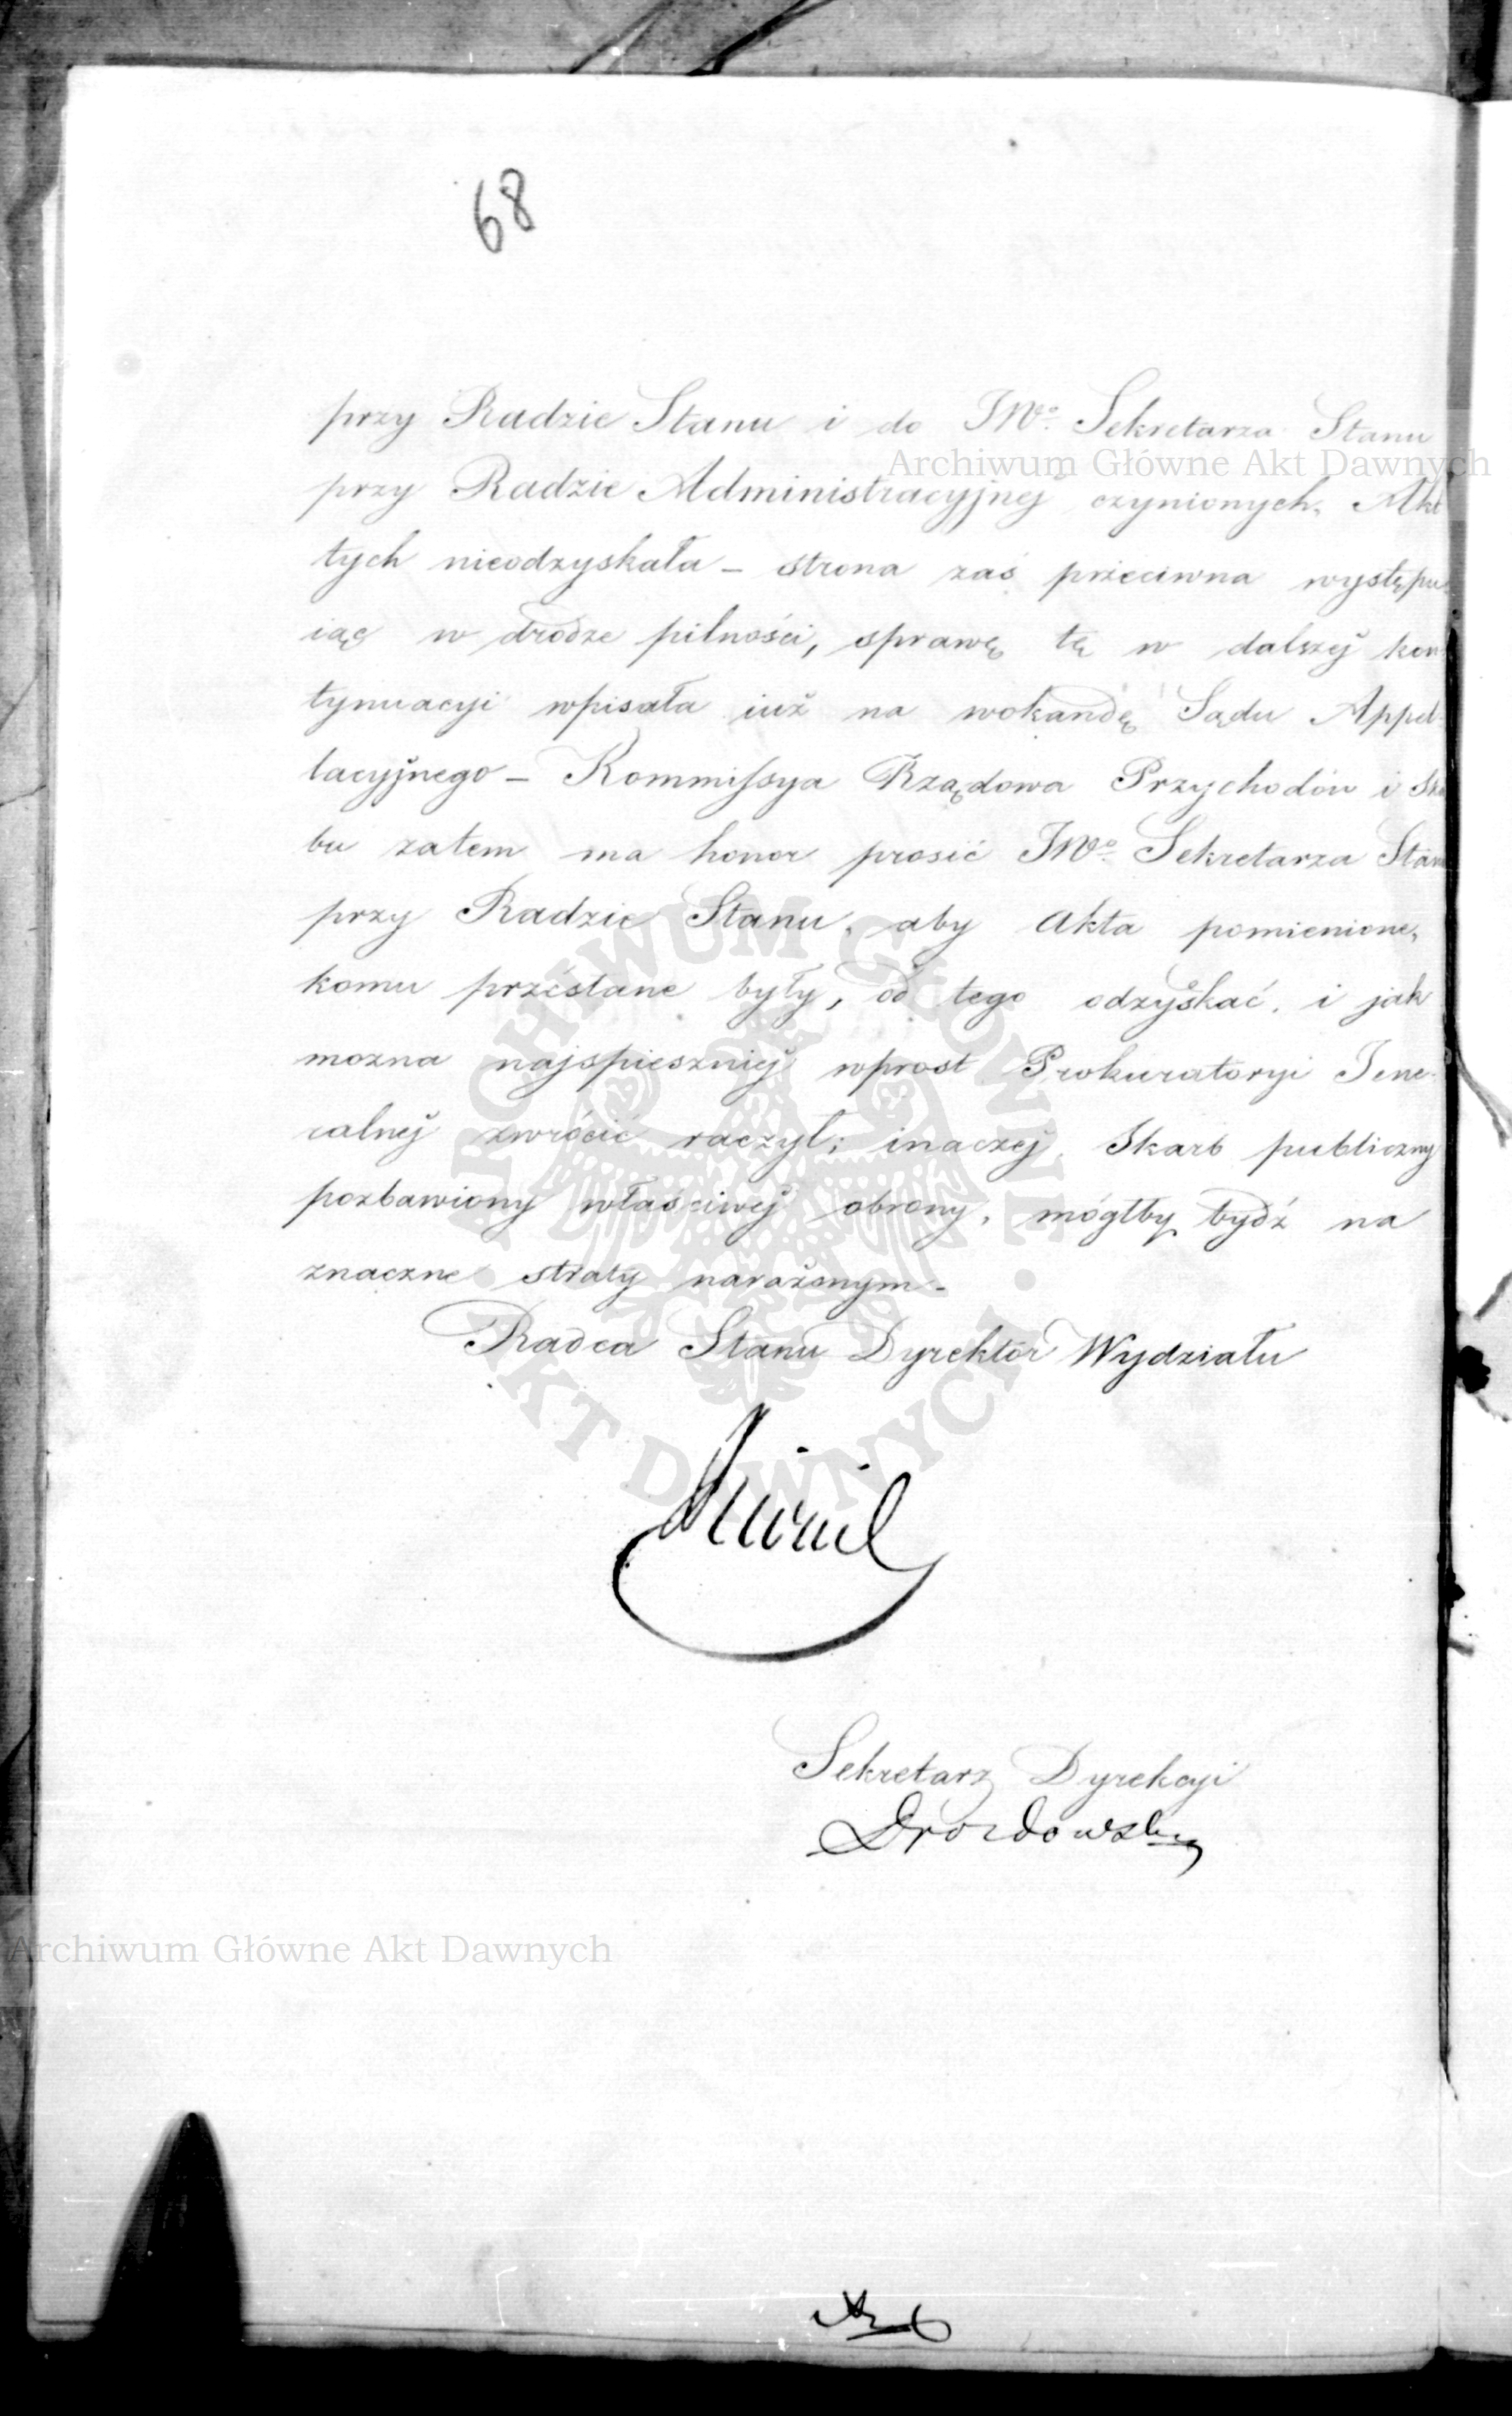 68
przy Radzie Stanu i do JWo. Sekretarza Stanu
Archiwum Główne Akt Dawnych
przy Radzie Administracyjnej czynionych, Akt
tych nieodzyskała – strona zaś przeciwna występu
iąc w drodze pilności, sprawę tę w dalszej kon
tynuacyi wpisała iuż na wokandę Sądu Appel-
lacyjnego – Kommissya Rządowa Przychodów i Ska
bu zatem ma honor prosić JWo. Sekretarza Stanu
przy Radzie Stanu, aby Akta pomienione,
komu przésłane były, od tego odzyskać, i jak
mozna najspieszniej wprost Prokuratoryi Jene-
ralnej zwrócić raczył; inaczej, Skarb publiczny
pozbawiony właściwej obrony, mógłby bydź na
znaczne straty narażonym –
Radca Stanu Dyrektor Wydziału
ARCHIWUM GŁÓWNE AKT DAWNYCH
Sekretarz Dyrekcyi
Drozdowski
Archiwum Główne Akt Dawnych